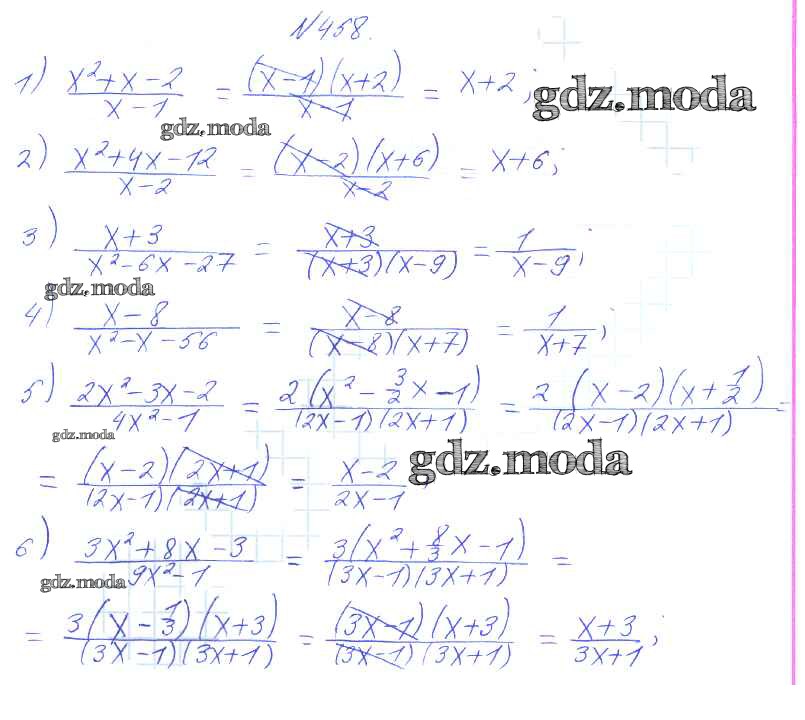 N458.
1) (x²+x-2)/(x-1) = ((x-1)(x+2))/(x-1) = x+2;
gdz.moda
gdz.moda
2) (x²+4x-12)/(x-2) = ((x-2)(x+6))/(x-2) = x+6;
3) (x+3)/(x²-6x-27) = (x+3)/((x+3)(x-9)) = 1/(x-9);
gdz.moda
4) (x-8)/(x²-x-56) = (x-8)/((x-8)(x+7)) = 1/(x+7);
5) (2x²-3x-2)/(4x²-1) = (2(x²-3/2x-1))/((2x-1)(2x+1)) = (2(x-2)(x+1/2))/((2x-1)(2x+1)) =
gdz.moda
= ((x-2)(2x+1))/((2x-1)(2x+1)) = (x-2)/(2x-1);
gdz.moda
6) (3x²+8x-3)/(9x²-1) = (3(x²+8/3x-1))/((3x-1)(3x+1)) =
gdz.moda
= (3(x-1/3)(x+3))/((3x-1)(3x+1)) = ((3x-1)(x+3))/((3x-1)(3x+1)) = (x+3)/(3x+1);